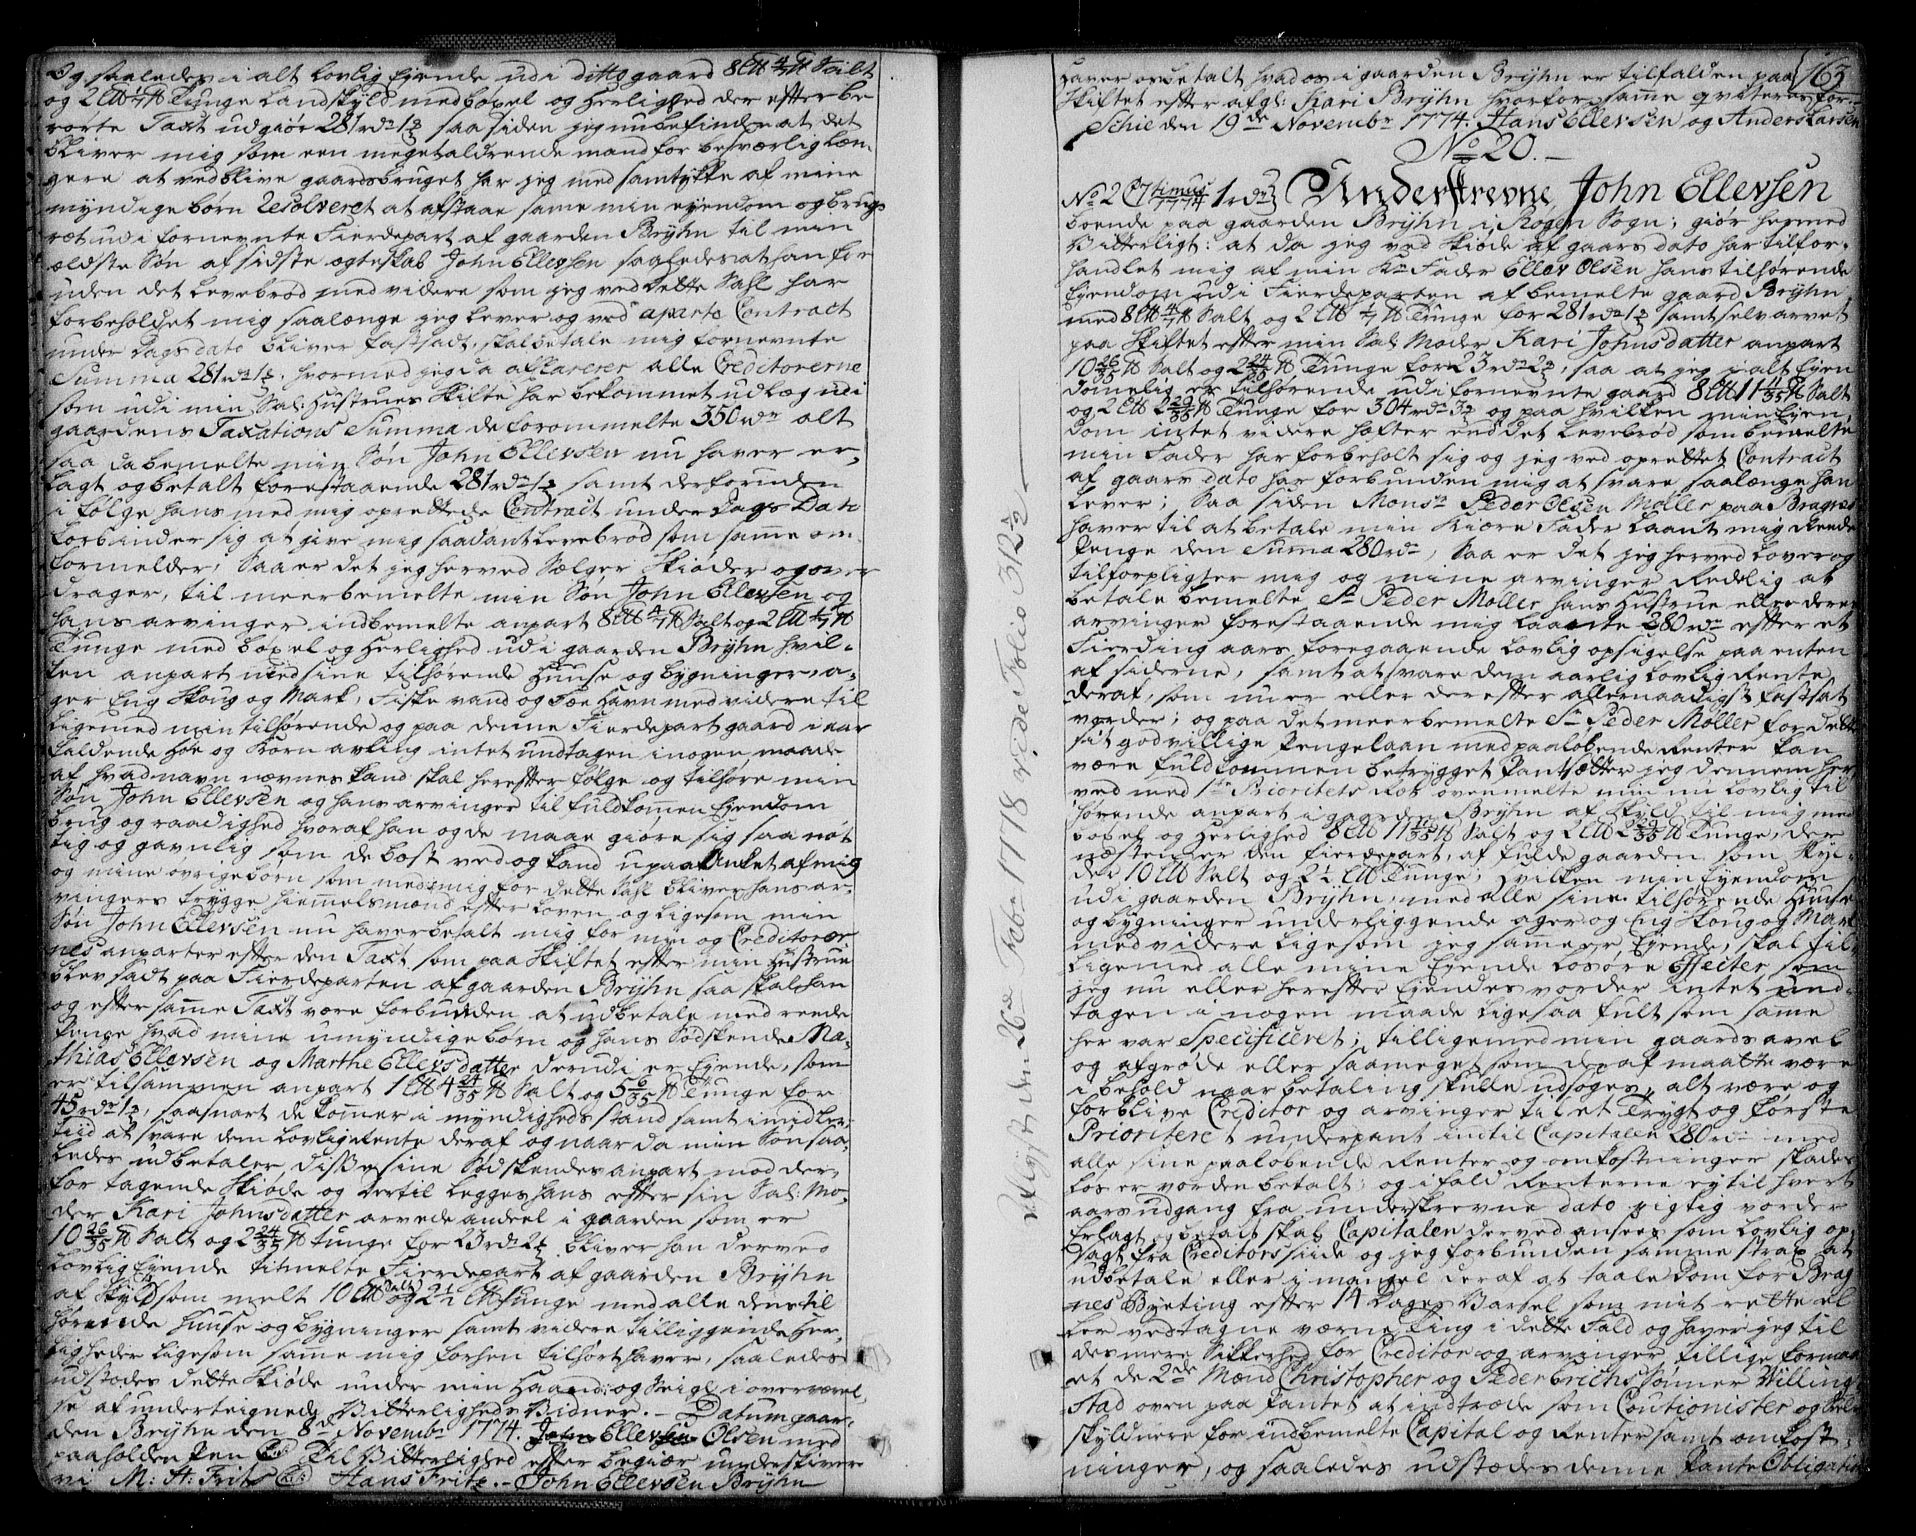 Og saaledes i alt lovlig Eyende udi ditto gaard 8 L℔ 4/7 ℔ Salt
og 2 L℔ 1/7 ℔ Tunge Landskyld med bøxel og herlighed der efter be
rørte Taxt udgiør 281 rdr 1 ¾ saa siden jeg nu befinder at det
bliver mig som een megetaldrende mand for besværlig læn-
gere at vedblive gaardsbruget har jeg med samtykke af mine
myndige børn Resolveret at afstaae same min eyendom og brugs
ræt udi fornevnte Fierdepart af gaarden Brÿhn til min
ældste Søn af sidste ægteskab John Ellevsen saaledes at han for
uden det Levebrød med videre som jeg ved dette Sahl har
forbeholdet mig saalænge jeg lever og ved aparte Contract
under Dags dato bliver fastsadt, skal betale mig fornevnte
Summa 281 rdr 1 ¾. hvormed jeg da afklarerer alle Creditorerne
som udi min Sal: Hustrues Skifte har bekommet udlæg udi
gaardens Taxations Summa de forommelte 350 rdr alt
saa da bemelte min Søn John Ellevsen nu haver er-
lagt og betalt forestaaende 281 rdr 1 ¾ samt derforuden
i følge hans med mig oprettede Contract under Dags Dato
forbinder sig at give mig saadant Levebrød som samme om-
formelder, Saa er det jeg herved Sælger Skiøder og over
drager, til meerbemelte min Søn John Ellevsen og
hans arvinger indbemelte anpart 8 L℔ 4/7 ℔ Salt og 2 L℔ 1/7 ℔
Tunge med bøxel og herlighed udi gaarden Brÿhn hvil-
ken anpart med sine tilhørende Huuse og bygninger, a-
ger Eng Skoug og Mark, Fiske vand og Fæe Havn med videre til
ligemed min tilhørende og paa denne Fierdepart gaard i aar
faldende Høe og Korn avling intet undtagen i nogen maade
af hvad navn nævnes kand skal herefter følge og tilhøre min
Søn John Ellevsen og hans arvinger til fuldkommen Eyendom
brug og raadighed hvoraf han og de maae giøre sig saa nøt
tig og gavnlig som de bæst ved og kand upaa Anket af mig
og mine øvrige børn som med mig for dette Sahl bliver hans ar-
vingers trygge hiemmelsmænd efter loven og ligesom min
Søn John Ellevsen nu haver betalt mig for min og Creditorer
nes anparter efter den Taxt som paa Skiftet efter min Hustrue
blev sadt paa Fierdeparten af gaarden Brÿhn saa skal han
og efter samme Taxt være forbunden at udbetale med reede
penge hvad mine umyndige børn og hans Sødskende Ma-
thias Ellevsen og Marthe Ellevsdatter derudi er Eyende, som
er tilsammen anpart 1 L℔ 4 24/35 ℔ Salt og 5 6/35 ℔ Tunge for
45 rdr 1 ¾, saasnart de kommer i myndigheds stand samt imidler-
tiid at svare dem lovlig Rente deraf og naar da min Søn saa-
ledes udbetaler disse sine Sødskendes anpart mod der-
for tagende Skiøde og dertil legges hans efter sin Sal: Mo-
der Kari Johnsdatter arvede andeel i gaarden som er
10 26/35 ℔ Salt og 2 24/35 ℔ Tunge for 23 rdr 2 ¾ bliver han derved
lovlig Eyende titmelte Fierdepart af gaarden Brÿhn
af Skyld som melt 10 L℔ Salt og 2 ½ L℔ Tunge med alle dens til
hørende Huuse og bygninger samt videre tilliggende Her-
ligheder ligesom samme mig forhen tilhørt haver, saaledes
udstædes dette Skiøde under min Haand og Seigl i overværel-
se af undertegnede Vitterligheds Vidner. – Datum gaar-
den Brÿhn den 8de Novembr 1774. Ellev Olsen med
paaholden Pen Til Vitterlighed efter begiær underskriver
vi M: H: Fritz Hans Fritz. – John Ellevsen Brÿhn
haver os betalt hvad os i gaarden Brÿhn er tilfalden paa
Skiftet efter afgl: Kari Brÿhn hvorfor samme qviteres for.
Schie den 19de Novembr 1774. Hans Ellevsen og Anders Larsen
163
No 20. –
No 2 Underskrevne, John Ellevsen
boende paa gaarden Brÿhn i Rogen Sogn; giør hermed
Vitterligt: at da jeg ved Skiøde af gaars dato har tilfor-
handlet mig af min Kr Fader Ellev Olsen hans tilhørende
Eyendom udi Fierdeparten af bemelte gaard Brÿhn
med 8 L℔ 4/7 ℔ Salt og 2 L℔ 1/7 ℔ Tunge for 281 rdr 1 ¾ samt selv arvet
paa Skiftet efter min Sal: Moder Kari Johnsdatter anpart
10 26/35 ℔ Salt og 2 24/35 ℔ Tunge for 23 rdr 2 ¾, saa at jeg i alt Eyen
domelig er tilhørende udi fornevnte gaard 8 L℔ 11 11/35 ℔ Salt
og 2 L℔ 2 29/35 ℔ Tunge for 304 rdr 3 ¾ og paa hvilken min Eyen
dom intet videre hæfter end det Levebrød som bemelte
min Fader har forbeholt sig og jeg ved oprettet Contract
af gaars dato har forbunden mig at svare saalænge han
lever; Saa siden Monsr Peder Olsen Møller paa Bragnes
haver til at betale min kiære Fader laant mig Reede
Penge den Suma 280 rdr, Saa er det jeg herved lover og
tilforpligter mig og mine arvinger Redelig at
betale bemelte Sr Peder Møller hans Hustrue eller deres
arvinger forestaaende mig laante 280 rdr efter et
Fierding aars foregaaende lovlig opsigelse paa enten
af siderne, samt at svare dem aarlig lovlig Rente
deraf, som nu er eller derefter allernaadigst fastsat
vorder; og paa det meerbemelte Sr Peder Møller for dette
sit godvillige Pengelaan med paaløbende Renter kan
være fuldkommen betrygget Pantsætter jeg dennem her
ved med 1ste Prioritets Ret ovenmelte min nu lovlig til
hørende anpart i gaarden Brÿhn af Skyld til mig med
bøxel og herlighed 8 L℔ 11 11/35 ℔ Salt og 2 L℔ 2 29/35 ℔ Tunge, der
næsten er den fierdepart, af fulde gaarden som skyl-
der 10 L℔ Salt og 2 ½ L℔ Tunge; hvilken min Eyendom
udi gaarden Brÿhn, med alle sine tilhørende Huuse
og bygninger underliggende ager og Eng Skoug og Mark
med videre ligesom jeg samme er Eyende, skal til-
ligemed alle mine Eyende løsøre Effecter som
jeg nu eller herefter Eyendes vorder intet und-
tagen i nogen maade ligesaa fult som same
her var Specificeret; tilligemed min gaards avel
og afgrøde eller saameget som deraf maatte være
i behold naar betaling skulle udsøges, alt være og
forblive Creditor og arvinger til et Trygt og første
Prioriteret underpant indtil Capitalen 280 rdr med
alle sine paaløbende Renter og omkostninger skades
løs er vorden betalt; og ifald Renterne ey til hvert
aars udgang fra underskrevne dato rigtig vorder
Erlagt og betalt skal Capitalen derved ansees som lovlig op-
sagt fra Creditors siide og jeg forbunden samme strax at
udbetale eller i mangel deraf at taale Dom for Brag
nes Byeting efter 14 Dages Varsel som mit rette el
ler vedtagne værneting i dette Fald og haver jeg til
des mere Sikkerhed for Creditor og arvinger tillige formaa-
et de 2de Mænd Christopher og Peder Erichs Sønner Villing-
stad oven paa Pantet at indtræde som Cautionister og Selv
skyldnere for indbemelte Capital og Renter samt omkost-
ninger, og saaledes udstædes denne Pante Obligation
Aflyst den 26de Febr 1778 vide Folio 312 ½